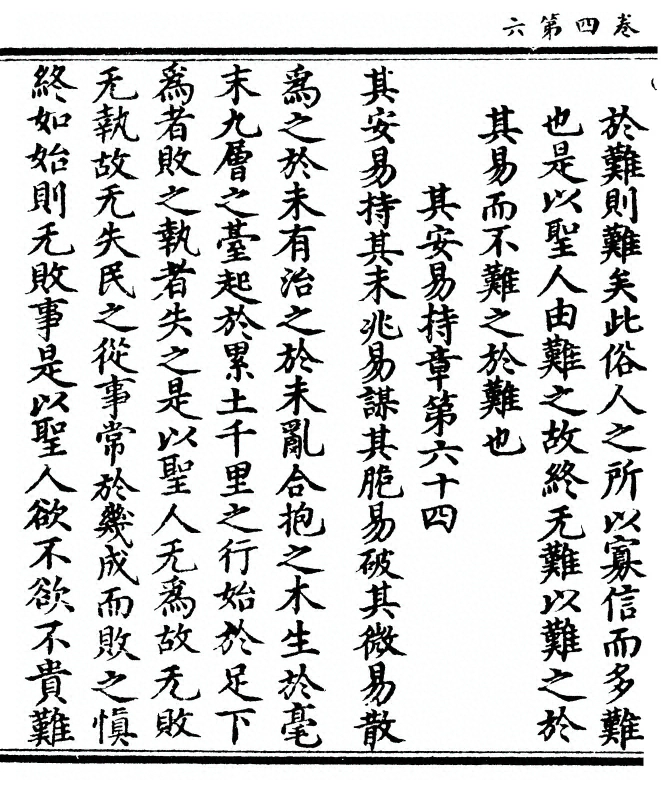 六第四卷
於難則難矣此俗人之所以寡信而多難
也是以聖人由難之故終无難以難之於
其易而不難之於難也
其安易持章第六十四
其安易持其未兆易謀其脆易破其微易散
為之於未有治之於未亂合抱之木生於毫
末九層之臺起於累土千里之行始於足下
為者敗之執者失之是以聖人无為故无敗
无執故无失民之從事常於幾成而敗之慎
終如始則无敗事是以聖人欲不欲不貴難